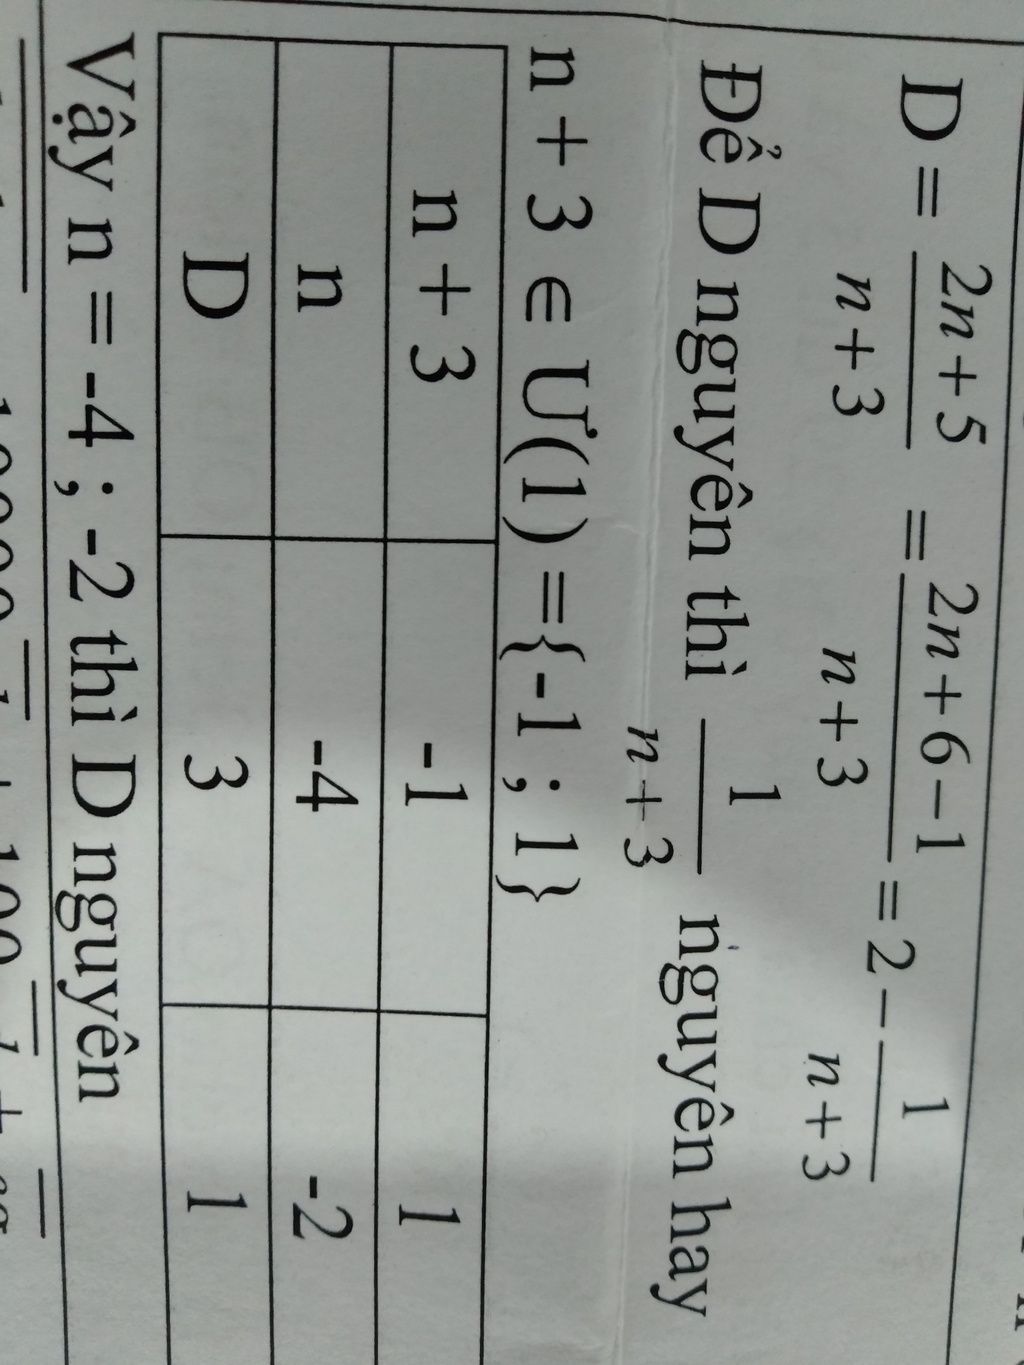 D = \frac{2n+5}{n+3} = \frac{2n+6-1}{n+3} = 2 - \frac{1}{n+3}
Để D nguyên thì \frac{1}{n+3} nguyên hay
n + 3 ∈ Ư(1) ={-1 ; 1}
n + 3 -1 1
n -4 -2
D 3 1
Vậy n = -4 ; -2 thì D nguyên